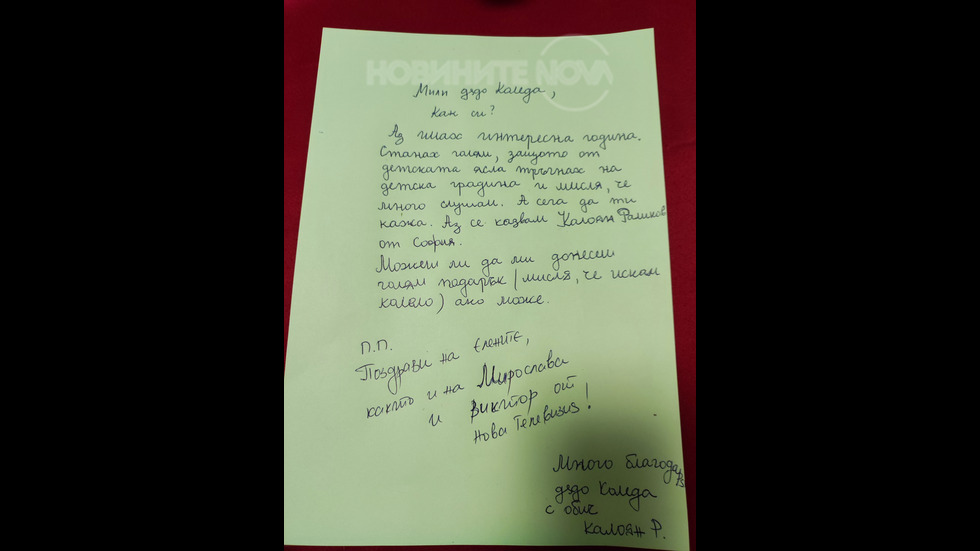 НОВИНИТЕ NOVA
Мили дядо Коледа,
Как си?
Аз имах интересна година.
Станах голям, защото от
детската ясла тръгнах на
детска градина и мисля, че
много слушам. А сега да ти
кажа. Аз се казвам Калоян Рашков
от София.
Можеш ли да ми донесеш
голям подарък (мисля, че искам
колело) ако може.
П.П.
Поздрави на елените,
както и на Мирослава
и Виктор от
Нова Телевизия!
Много благодаря
дядо Коледа
с обич
Калоян Р.